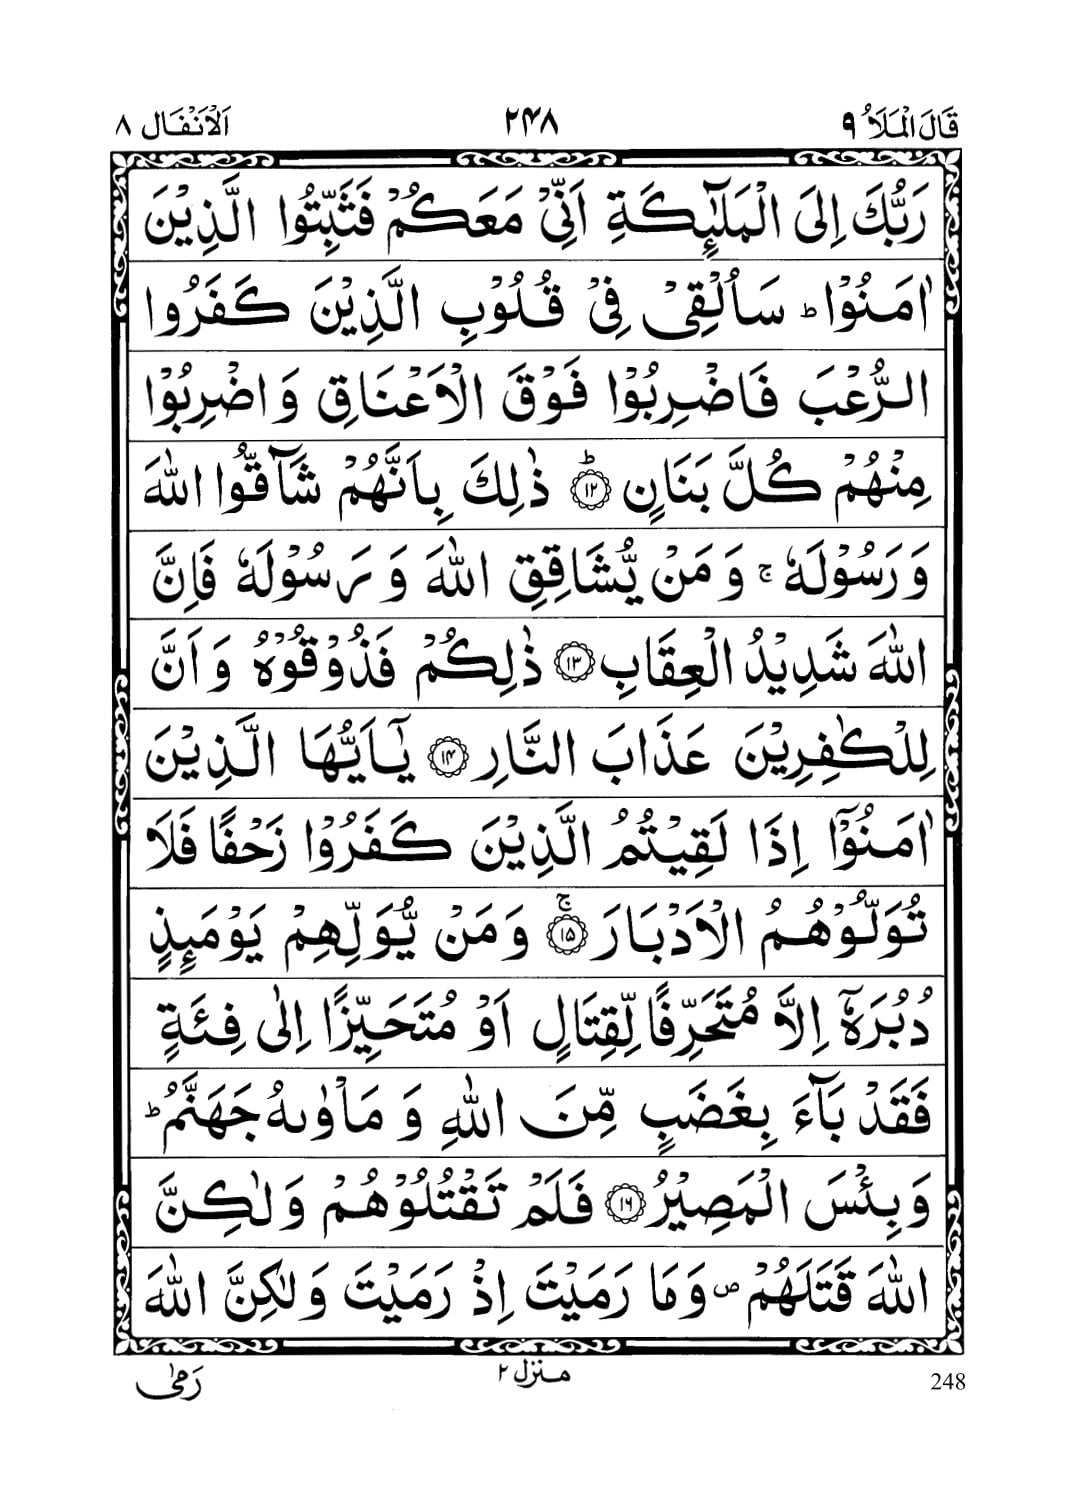 قَالَ الْمَلَاُ ۹ ۲۴۸ اَلْاَنْفَال ۸
رَبُّكَ اِلَى الْمَلٰٓئِكَةِ اَنِّيْ مَعَكُمْ فَثَبِّتُوا الَّذِيْنَ
اٰمَنُوْا ؕ سَاُلْقِيْ فِيْ قُلُوْبِ الَّذِيْنَ كَفَرُوا
الرُّعْبَ فَاضْرِبُوْا فَوْقَ الْاَعْنَاقِ وَاضْرِبُوْا
مِنْهُمْ كُلَّ بَنَانٍ ؕ ﴿۱۲﴾ ذٰلِكَ بِاَنَّهُمْ شَآقُّوا اللّٰهَ
وَرَسُوْلَهٗ ۚ وَمَنْ يُّشَاقِقِ اللّٰهَ وَرَسُوْلَهٗ فَاِنَّ
اللّٰهَ شَدِيْدُ الْعِقَابِ ﴿۱۳﴾ ذٰلِكُمْ فَذُوْقُوْهُ وَاَنَّ
لِلْكٰفِرِيْنَ عَذَابَ النَّارِ ﴿۱۴﴾ يٰۤاَيُّهَا الَّذِيْنَ
اٰمَنُوْۤا اِذَا لَقِيْتُمُ الَّذِيْنَ كَفَرُوْا زَحْفًا فَلَا
تُوَلُّوْهُمُ الْاَدْبَارَ ۚ ﴿۱۵﴾ وَمَنْ يُّوَلِّهِمْ يَوْمَئِذٍ
دُبُرَهٗۤ اِلَّا مُتَحَرِّفًا لِّقِتَالٍ اَوْ مُتَحَيِّزًا اِلٰى فِئَةٍ
فَقَدْ بَآءَ بِغَضَبٍ مِّنَ اللّٰهِ وَمَاْوٰىهُ جَهَنَّمُ ؕ
وَبِئْسَ الْمَصِيْرُ ﴿۱۶﴾ فَلَمْ تَقْتُلُوْهُمْ وَلٰكِنَّ
اللّٰهَ قَتَلَهُمْ ۪ وَمَا رَمَيْتَ اِذْ رَمَيْتَ وَلٰكِنَّ اللّٰهَ
رَمٰى منزل ۲ 248